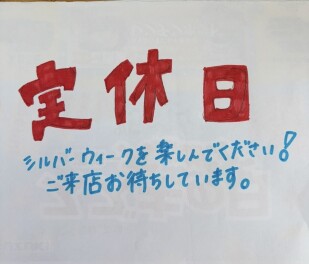 定休日
シルバーウィークを楽しんでください!
ご来店お待ちしています。